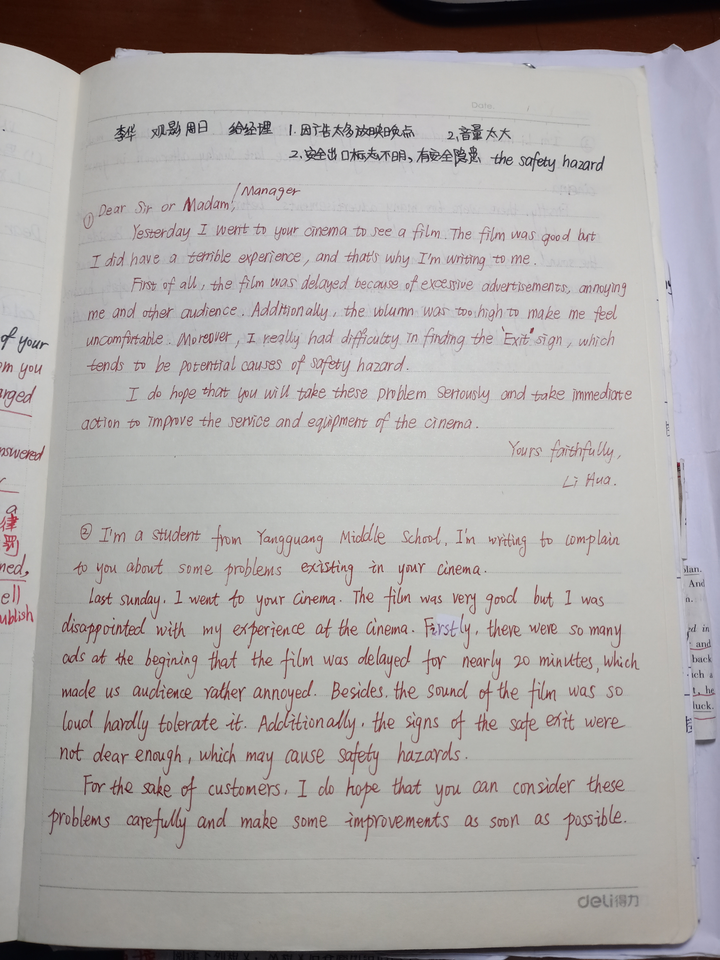 Date. /
李华 观影周日 给经理 1.因广告太多放映晚点 2,音量太大
2.安全出口标志不明,有安全隐患 the safety hazard
① Dear Sir or Madam,/Manager
Yesterday I went to your cinema to see a film. The film was good but
I did have a terrible experience, and that's why I'm writing to me.
First of all, the film was delayed because of excessive advertisements, annoying
me and other audience. Additionally, the volumn was too high to make me feel
uncomfortable. Moreover, I really had difficulty in finding the "Exit" sign, which
tends to be potential causes of safety hazard.
I do hope that you will take these problem seriously and take immediate
action to improve the service and equipment of the cinema.
Yours faithfully,
Li Hua.
② I'm a student from Yangguang Middle School, I'm writing to complain
to you about some problems existing in your cinema.
Last sunday, I went to your cinema. The film was very good but I was
disappointed with my experience at the cinema. Firstly, there were so many
ads at the begining that the film was delayed for nearly 20 minutes, which
made us audience rather annoyed. Besides, the sound of the film was so
loud hardly tolerate it. Additionally, the signs of the safe exit were
not dear enough, which may cause safety hazards.
For the sake of customers, I do hope that you can consider these
problems carefully and make some improvements as soon as possible.
deli得力
of your
om you
arged
nswered
a
律
罚
ned,
ell
ublish
plan.
And
and
back
he
luck.